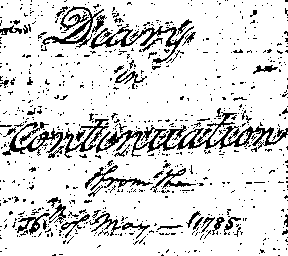 Diary
in
Continuation
from the
of May — 1785